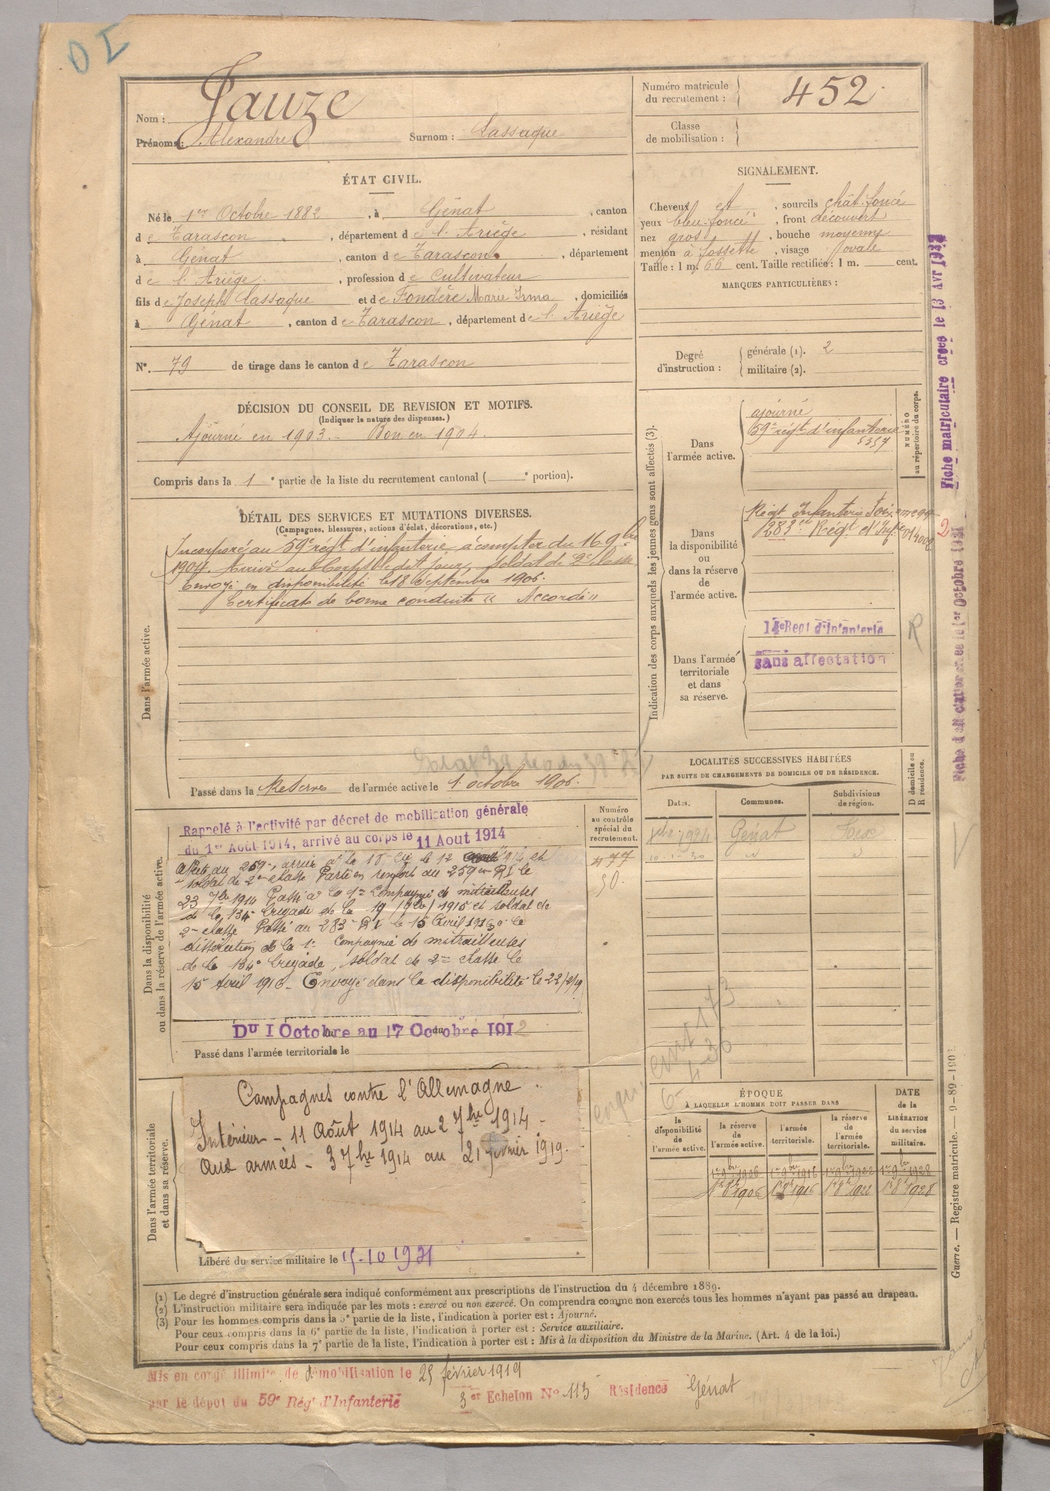 D I
Nom : Fauze
Prénoms : Alexandre Surnom : Lassaque
Numéro matricule
du recrutement : 452
Classe
de mobilisation :
ÉTAT CIVIL.
Né le 1er Octobre 1882, à Génat, canton
de Tarascon, département de l'Ariège, résidant
à Génat, canton de Tarascon, département
de l'Ariège, profession de Cultivateur
fils de Joseph Lassaque et de Fondère Marie Irma, domiciliés
à Génat, canton de Tarascon, département de l'Ariège
N° 79 de tirage dans le canton de Tarascon
SIGNALEMENT.
Cheveux et, sourcils chât. foncé
yeux bleu foncé, front découvert
nez gros, bouche moyenne
menton à fossette, visage ovale
Taille : 1 m. 66 cent. Taille rectifiée : 1 m. cent.
MARQUES PARTICULIÈRES :
Degré
d'instruction :
générale (1). 2
militaire (2).
DÉCISION DU CONSEIL DE REVISION ET MOTIFS.
(Indiquer la nature des dispenses.)
Ajourné en 1903. Bon en 1904.
Compris dans la 1e partie de la liste du recrutement cantonal ( e portion).
DÉTAIL DES SERVICES ET MUTATIONS DIVERSES.
(Campagnes, blessures, actions d'éclat, décorations, etc.)
Dans l'armée active.
Incorporé au 59e régt d'infanterie à compter du 16 9bre
1904. Arrivé au Corps le dit jour, soldat de 2e classe
Envoyé en disponibilité le 18 Septembre 1906.
Certificat de bonne conduite « Accordé »
Passé dans la Réserve de l'armée active le 1 octobre 1906.
Indication des corps auxquels les jeunes gens sont affectés (3).
NUMÉRO
au répertoire du corps.
Dans
l'armée active.
ajourné
59e régt d'infanterie
5357
Dans
la disponibilité
ou dans
la réserve de
l'armée active.
Régt Infanterie Foix
283e Régt d'Inf
2
Dans l'armée
territoriale
et dans
sa réserve.
14e Régt d'Infanterie
sans affectation
R
LOCALITÉS SUCCESSIVES HABITÉES
PAR SUITE DE CHANGEMENTS DE DOMICILE OU DE RÉSIDENCE.
D domicile ou
R résidence.
Dates. Communes. Subdivisions
de région.
1924 Génat Foix
Dans la disponibilité
ou dans la réserve de l'armée active.
Numéro
au contrôle
spécial du
recrutement.
477
50.
Rappelé à l'activité par décret de mobilisation générale
du 1er Août 1914, arrivé au corps le 11 Aout 1914
soldat de 2e classe Parti en renfort au 259e RI le
23 7bre 1914 Passé à la 1e Compagnie de mitrailleuses
de la 134e brigade et soldat de
2e classe Passé au 283e RI le 15 Avril 1916
dissolution de la 1e Compagnie de mitrailleuses
de la 134e brigade, soldat de 2e classe le
15 Avril 1916 - Envoyé dans la disponibilité le 22/2/19
Du 1 Octobre au 17 Octobre 1912
Passé dans l'armée territoriale le
Dans l'armée territoriale
et dans sa réserve.
Campagnes contre l'Allemagne.
Intérieur - 11 Août 1914 au 2 7bre 1914 -
Aux armées - 3 7bre 1914 au 21 février 1919.
Libéré du service militaire le 15-10 1931
ÉPOQUE
À LAQUELLE L'HOMME DOIT PASSER DANS
DATE
de la
LIBÉRATION
du service
militaire.
la
disponibilité
de
l'armée active.
la réserve
de
l'armée active.
l'armée
territoriale.
la réserve
de
l'armée
territoriale.
1er 8bre 1906 1er 8bre 1916 1er 8bre 1922 1er 8bre 1928
(1) Le degré d'instruction générale sera indiqué conformément aux prescriptions de l'instruction du 4 décembre 1889.
(2) L'instruction militaire sera indiquée par les mots : exercé ou non exercé. On comprendra comme non exercés tous les hommes n'ayant pas passé au drapeau.
(3) Pour les hommes compris dans la 5e partie de la liste, l'indication à porter est : Ajourné.
Pour ceux compris dans la 6e partie de la liste, l'indication à porter est : Service auxiliaire.
Pour ceux compris dans la 7e partie de la liste, l'indication à porter est : Mis à la disposition du Ministre de la Marine. (Art. 4 de la loi.)
Mis en congé illimité de démobilisation le 25 février 1919
par le dépôt du 59e Rég d'Infanterie 3er Echelon N° 113 Résidence Génat
Fiche matriculaire créée le 13 Avr
Guerre. — Registre matricule.